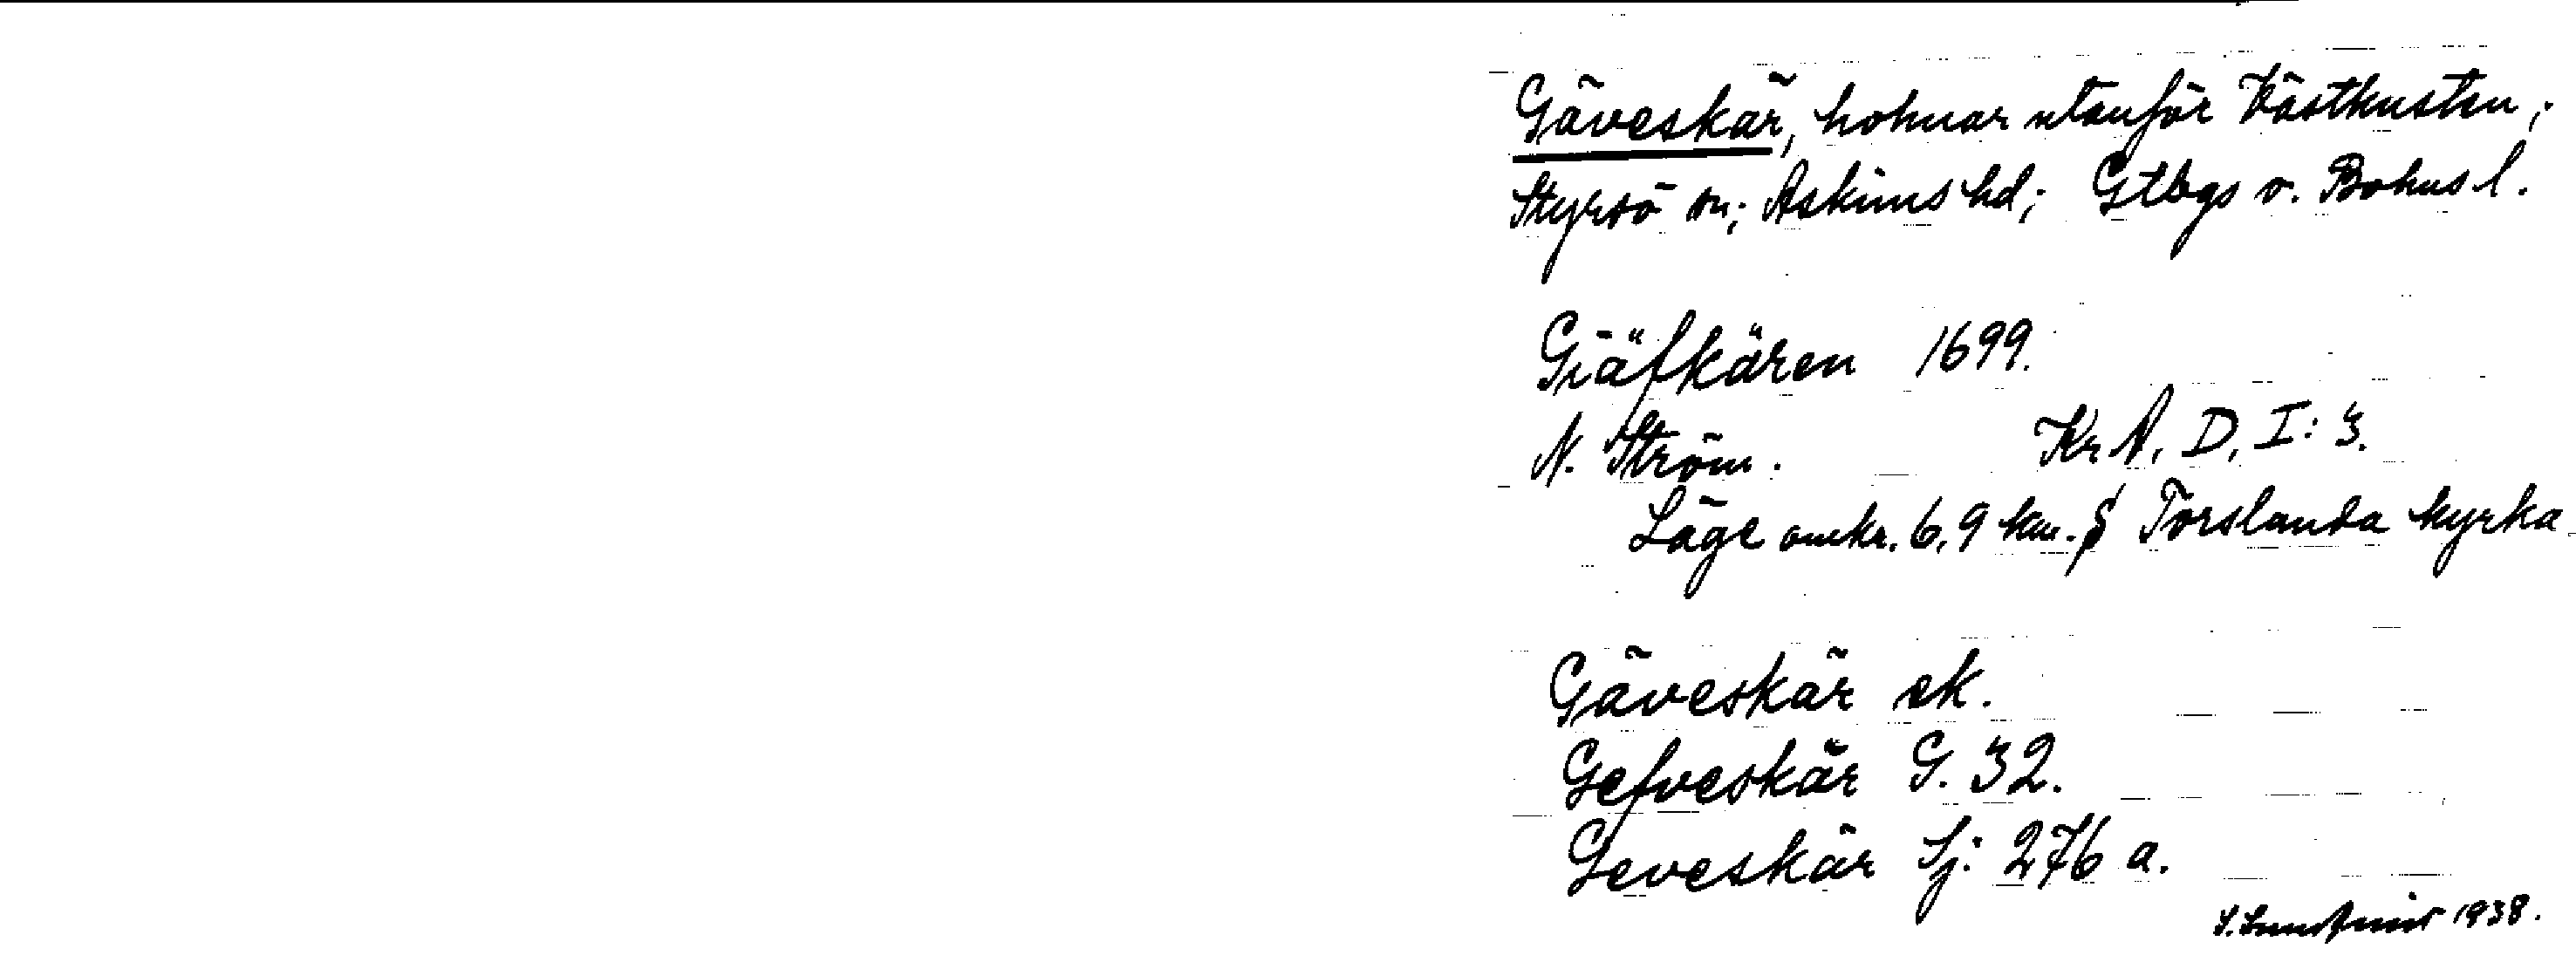 Gäveskär, holmar utanför Västkusten;
Styrsö sn; Askims hd; Gtbgs o. Bohus l.
Giäfkären 1699.
N. Ström. Kr A. D. I: 3.
Läge omkr. 6,9 km. S Torslanda kyrka
Gäveskär ek.
Gefveskär G. 32.
Geveskär Sj: 276 a.
1938.